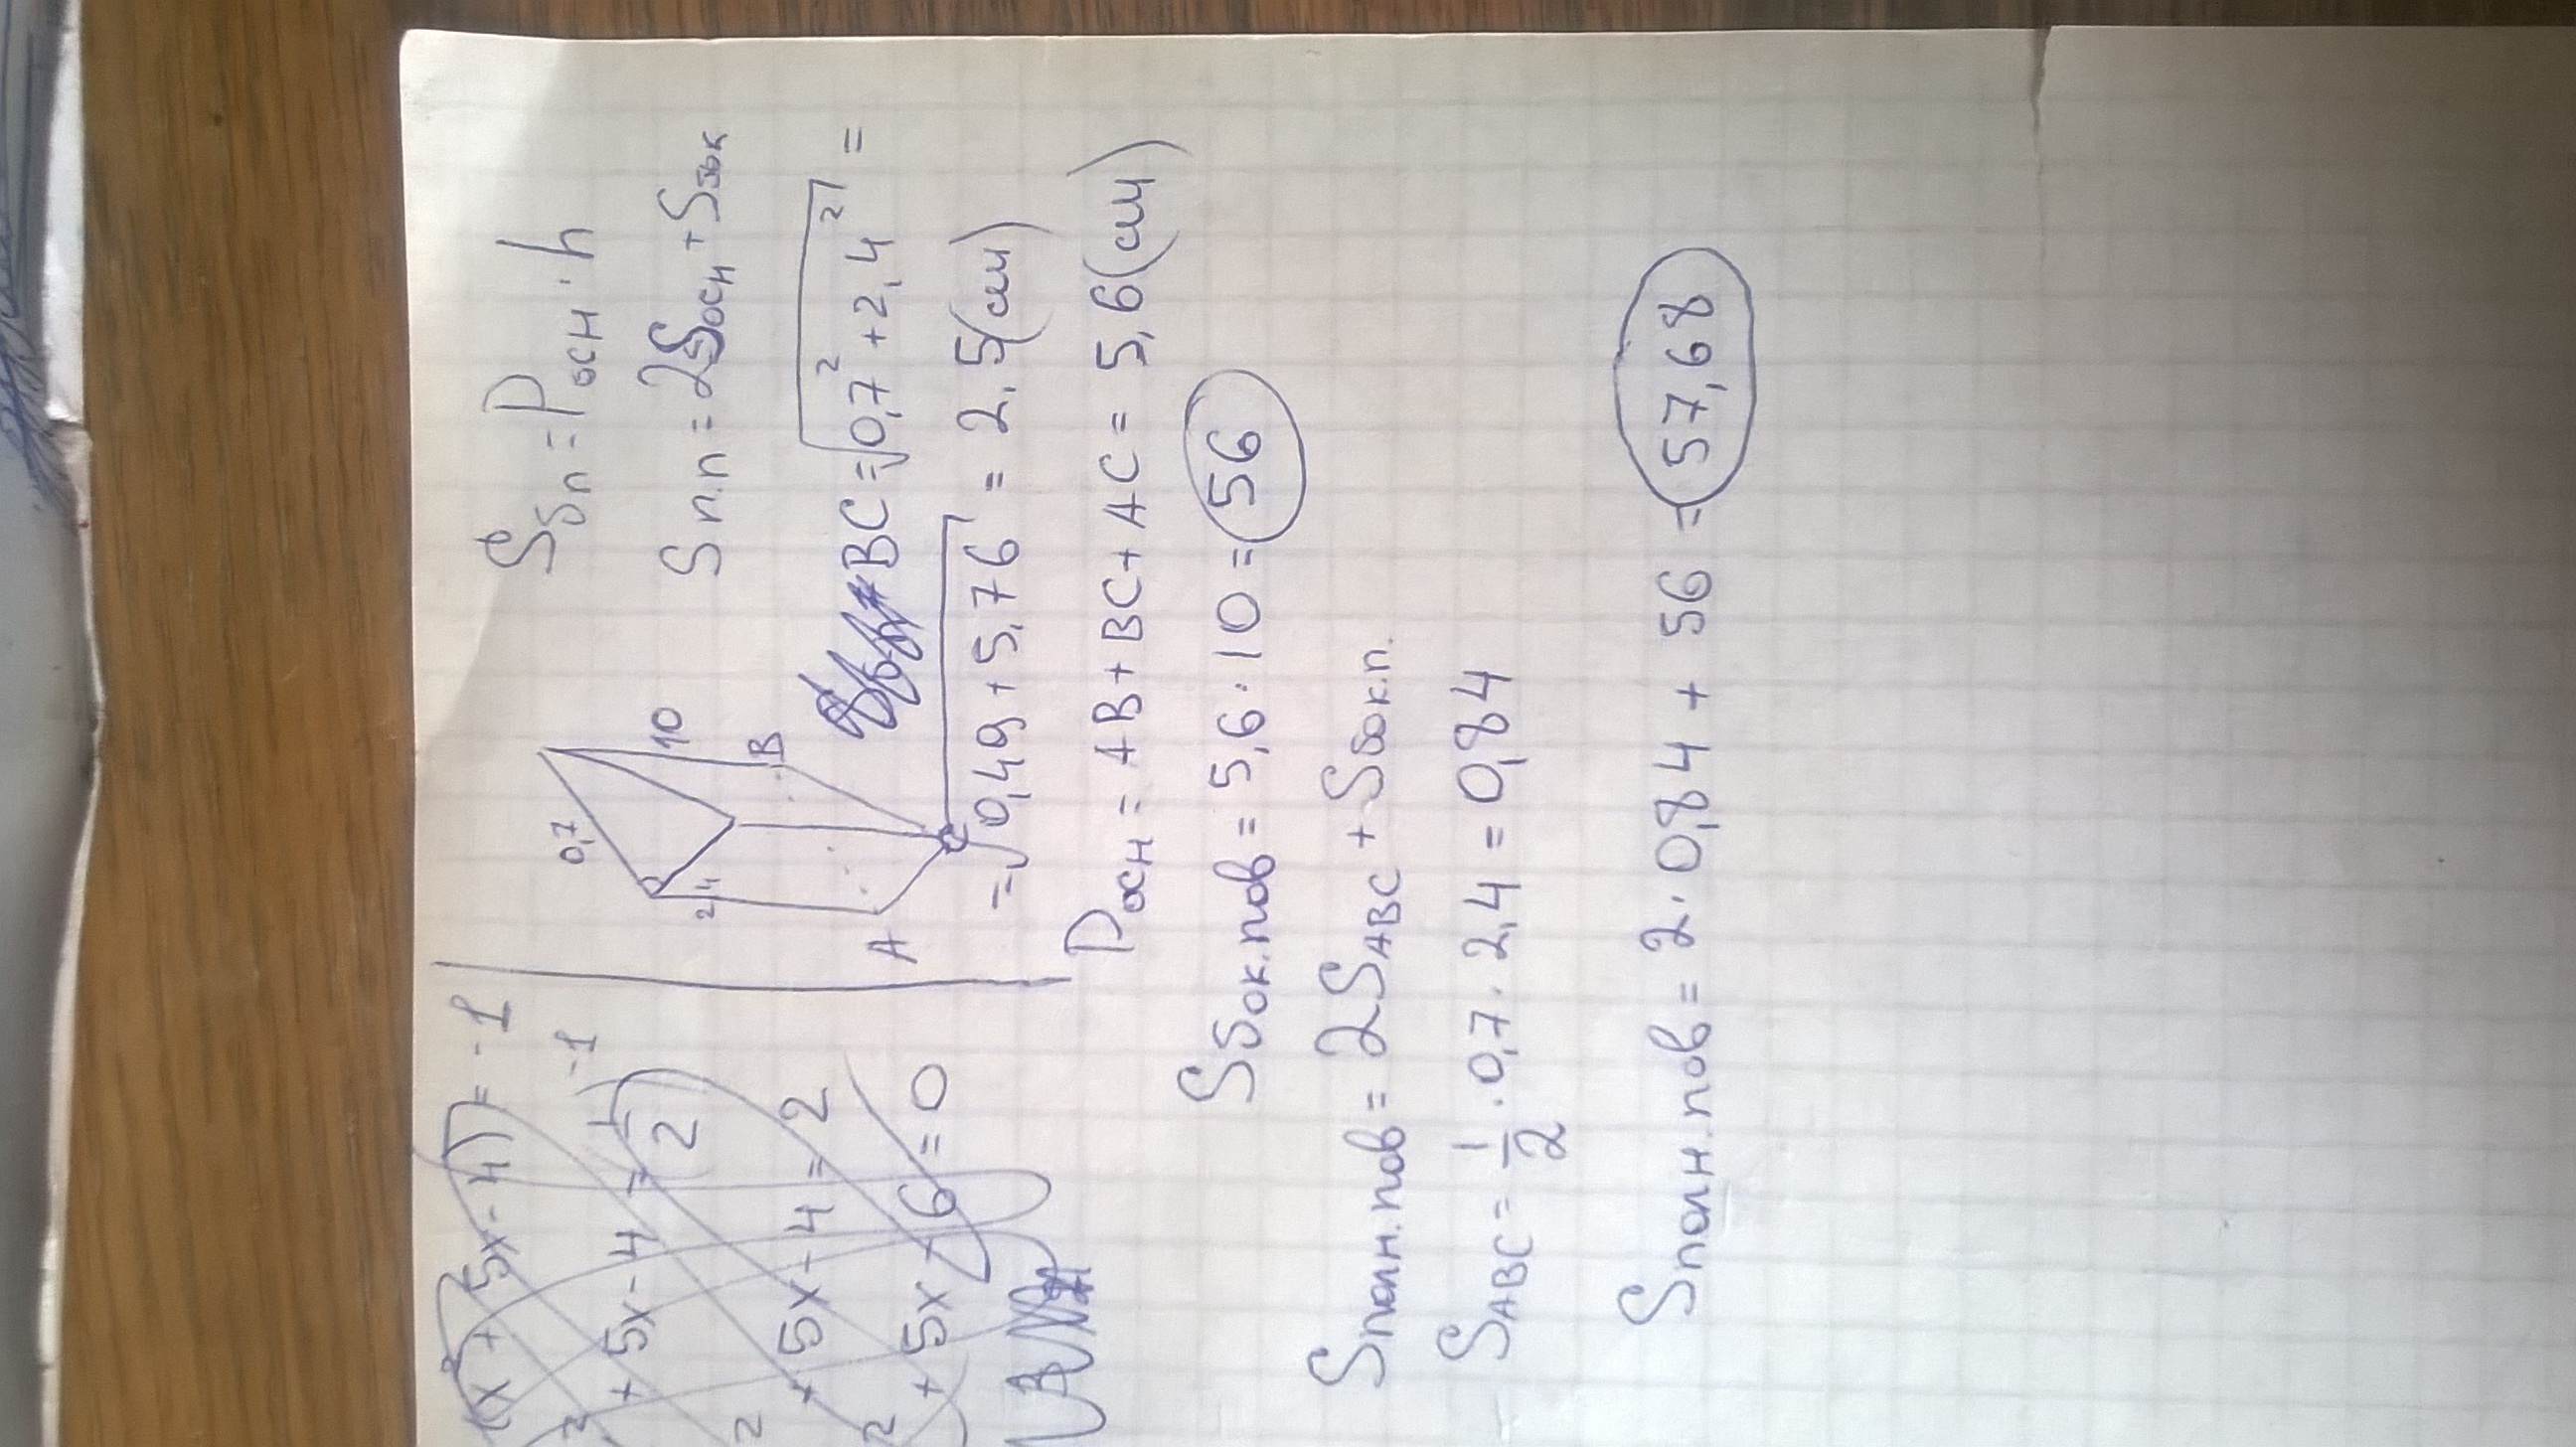 (x² + 5x - 4) = -1
² + 5x - 4 = (1/2)⁻¹
² + 5x - 4 = 2
² + 5x - 6 = 0
0,7
2,4
10
A
B
C
Sбп = Pосн · h
Sп.п = 2Sосн + Sбок
BC = √0,7² + 2,4² =
= √0,49 + 5,76 = 2,5 (см)
Pосн = AB + BC + AC = 5,6 (см)
Sбок.пов = 5,6 · 10 = 56
Sполн.пов = 2SABC + Sбок.п.
SABC = 1/2 · 0,7 · 2,4 = 0,84
Sполн.пов = 2 · 0,84 + 56 = 57,68